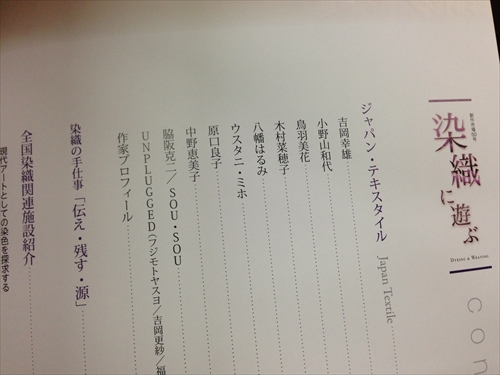 染織に遊ぶ
DYEING & WEAVING
con
ジャパン・テキスタイル Japan Textile
吉岡幸雄
小野山和代
鳥羽美花
木村菜穂子
八幡はるみ
ウスタニ・ミホ
原口良子
中野恵美子
脇阪克二／SOU・SOU
UNPLUGGED(フジモトヤスヨ／吉岡更紗／福
作家プロフィール
染織の手仕事「伝え・残す・源」
全国染織関連施設紹介
現代アートとしての染色を探求する